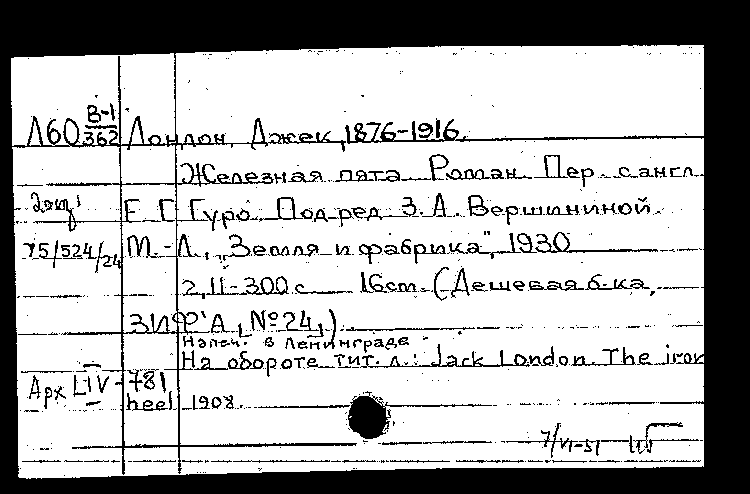 Л60 В-1/362 Лондон, Джек, 1876-1916.
Железная пята. Роман. Пер. с англ.
Е. Г. Гуро. Под ред. З. А. Вершининой.
75/524/24 М.-Л., „Земля и фабрика", 1930
2, II-300 с. 16 см. (Дешевая б-ка,
ЗИФ'А, №24,)
Напеч. в Ленинграде.
На обороте тит. л.: Jack London. The iron
Арх LIV-781 heel 1908.
7/VI-51